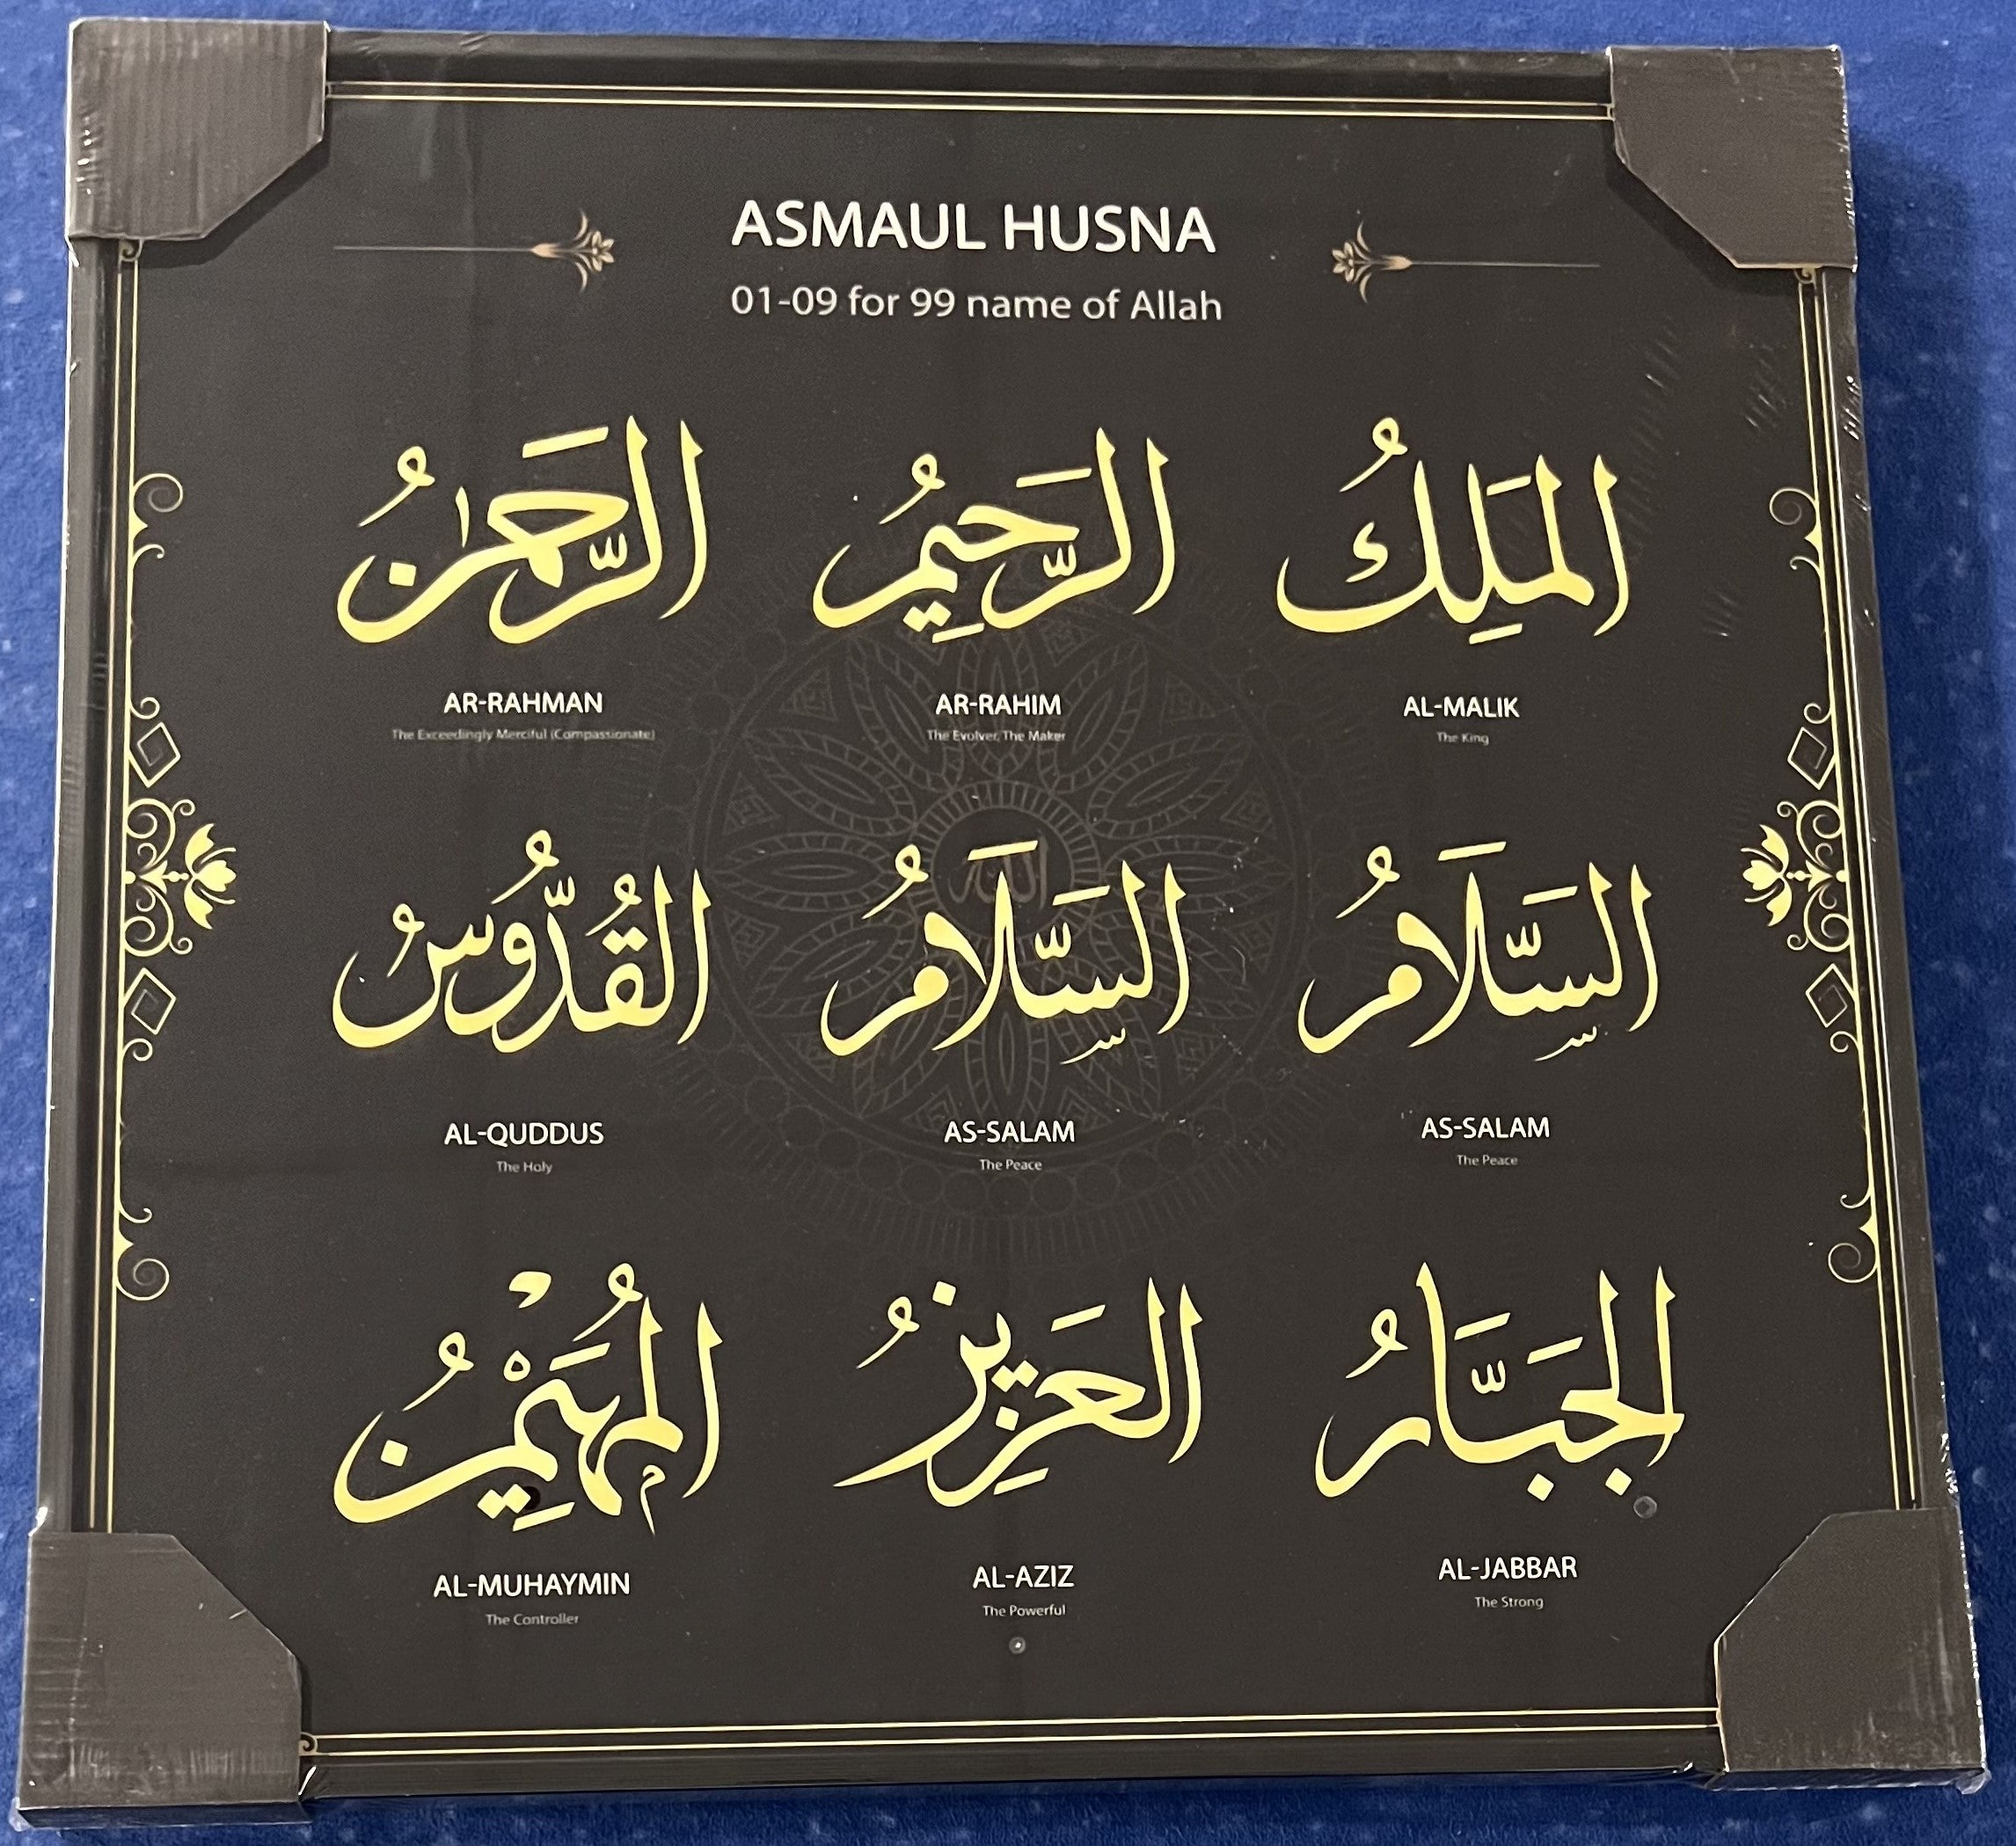 ASMAUL HUSNA
01-09 for 99 name of Allah
الرَّحْمَٰنُ
الرَّحِيمُ
المَلِكُ
AR-RAHMAN
The Exceedingly Merciful (Compassionate)
AR-RAHIM
The Evolver, The Maker
AL-MALIK
The King
الله
القُدُّوسُ
السَّلَامُ
السَّلَامُ
AL-QUDDUS
The Holy
AS-SALAM
The Peace
AS-SALAM
The Peace
المُهَيْمِنُ
العَزِيزُ
الجَبَّارُ
AL-MUHAYMIN
The Controller
AL-AZIZ
The Powerful
AL-JABBAR
The Strong